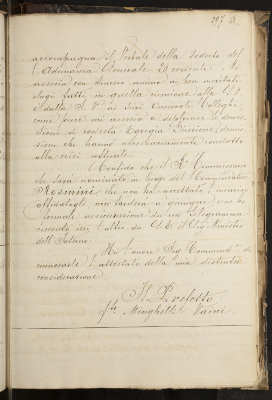 accompagna il Verbale della Seduta del
l'Adunanza Generale 20 corrente. Mi
associo con animo ai ben meritati
elogi fatti in quella riunione alla
e dalla S. V. ai Suoi Onorevoli Colleghi,
come pure mi associo a deplorare le dimis
sioni di codesta Egregia Direzione, dimis
sioni che hanno condotto
alla crisi attuale.
Confido che il R.o Commissario
che sarà nominato in luogo del Commendatore
Rosmini che non ha accettato l'incarico
affidatogli non tarderà a giungere, con
formale assicurazione da un telegramma
ricevuto ieri l'altro da S. E. il Sig. Ministro
dell'Interno.
Ho l'onore Sig. Commend.e di
rinnovarle l'attestato della mia distinta
considerazione.
Il Prefetto
f.to Minghelli Vaini